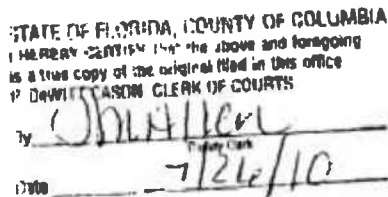 STATE OF FLORIDA, COUNTY OF COLUMBIA
I HEREBY CERTIFY that the above and foregoing
is a true copy of the original filed in this office
P. DeWITT CASON CLERK OF COURTS
By
Deputy Clerk
Date 7/26/10